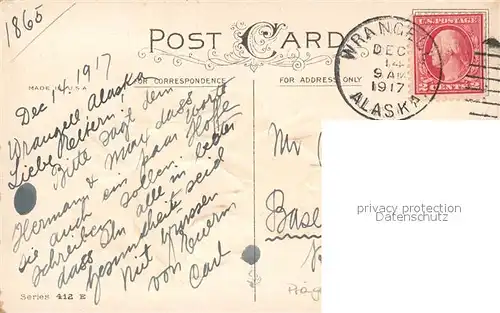 1865
POST CARD
WRANGEL
DEC
14
9 AM
1917
ALASKA
U.S. POSTAGE
2 CENTS 2
MADE U.S.A.
FOR CORRESPONDENCE
FOR ADDRESS ONLY
Dec 14, 1917
Wrangell Alaska
Liebe Eltern!
Bitte sagt dem
Hermann & Max dass
sie auch ein paar Worte
schreiben sollen. Hoffe
dass Ihr alle in bester
Gesundheit seid
Mit Grüssen
von Eurem
Carl
Mr
Base
privacy protection
Datenschutz
Series 412 E